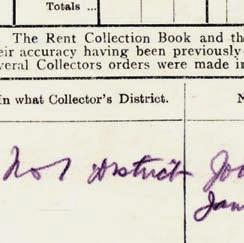 Totals ...
The Rent Collection Book and th
eir accuracy having been previously
veral Collectors orders were made in
In what Collector's District.
No 1 District